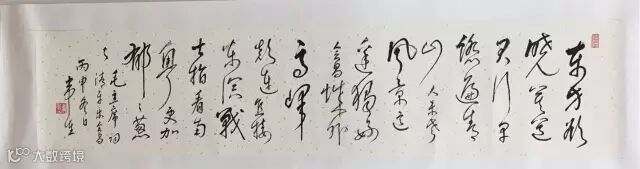 东方欲
晓莫道
君行早
踏遍青
山人未老
风景这
边独好
会昌城外
高峰
颠连直接
东溟战
士指看南
粤更加
郁々葱
々毛主席词
清平乐会昌
丙申冬日
大数跨境